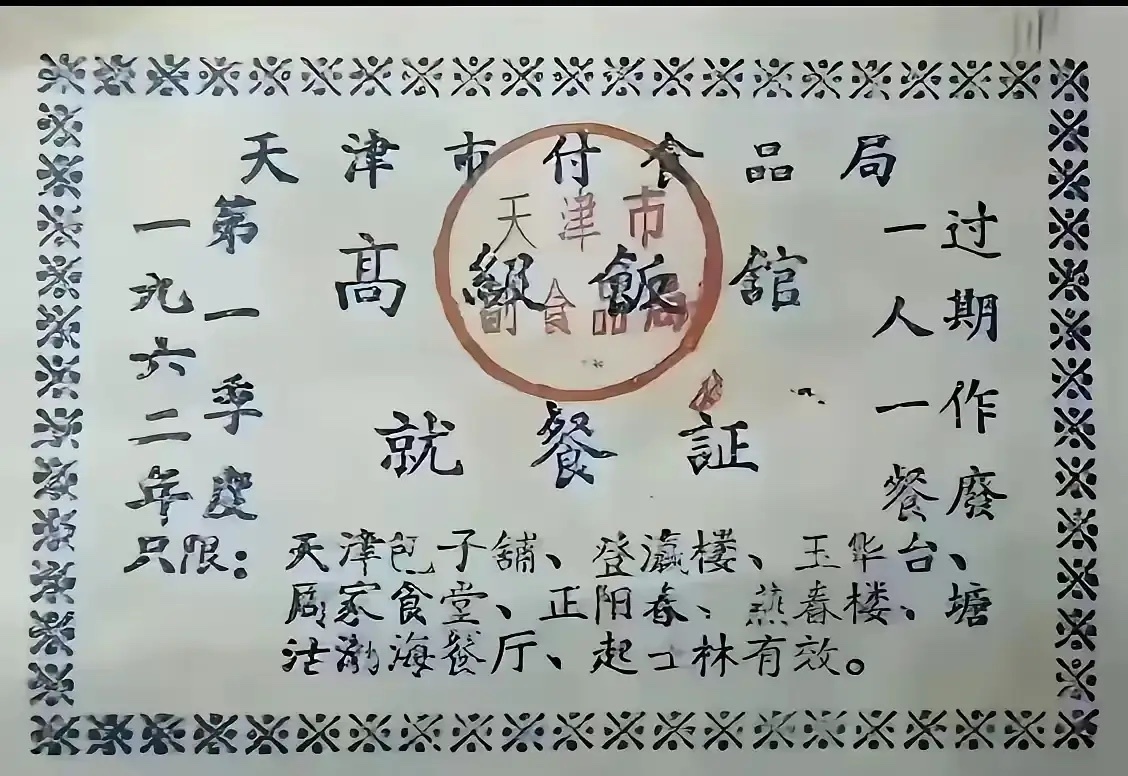 天津市付食品局
高級飯舘
就餐証
一九六二年
第一季度
过期作廢
一人一餐
只限：天津包子舖、登瀛樓、玉华台、
周家食堂、正阳春、燕春楼、塘
沽渤海餐厅、起士林有效。
天津市
副食品局